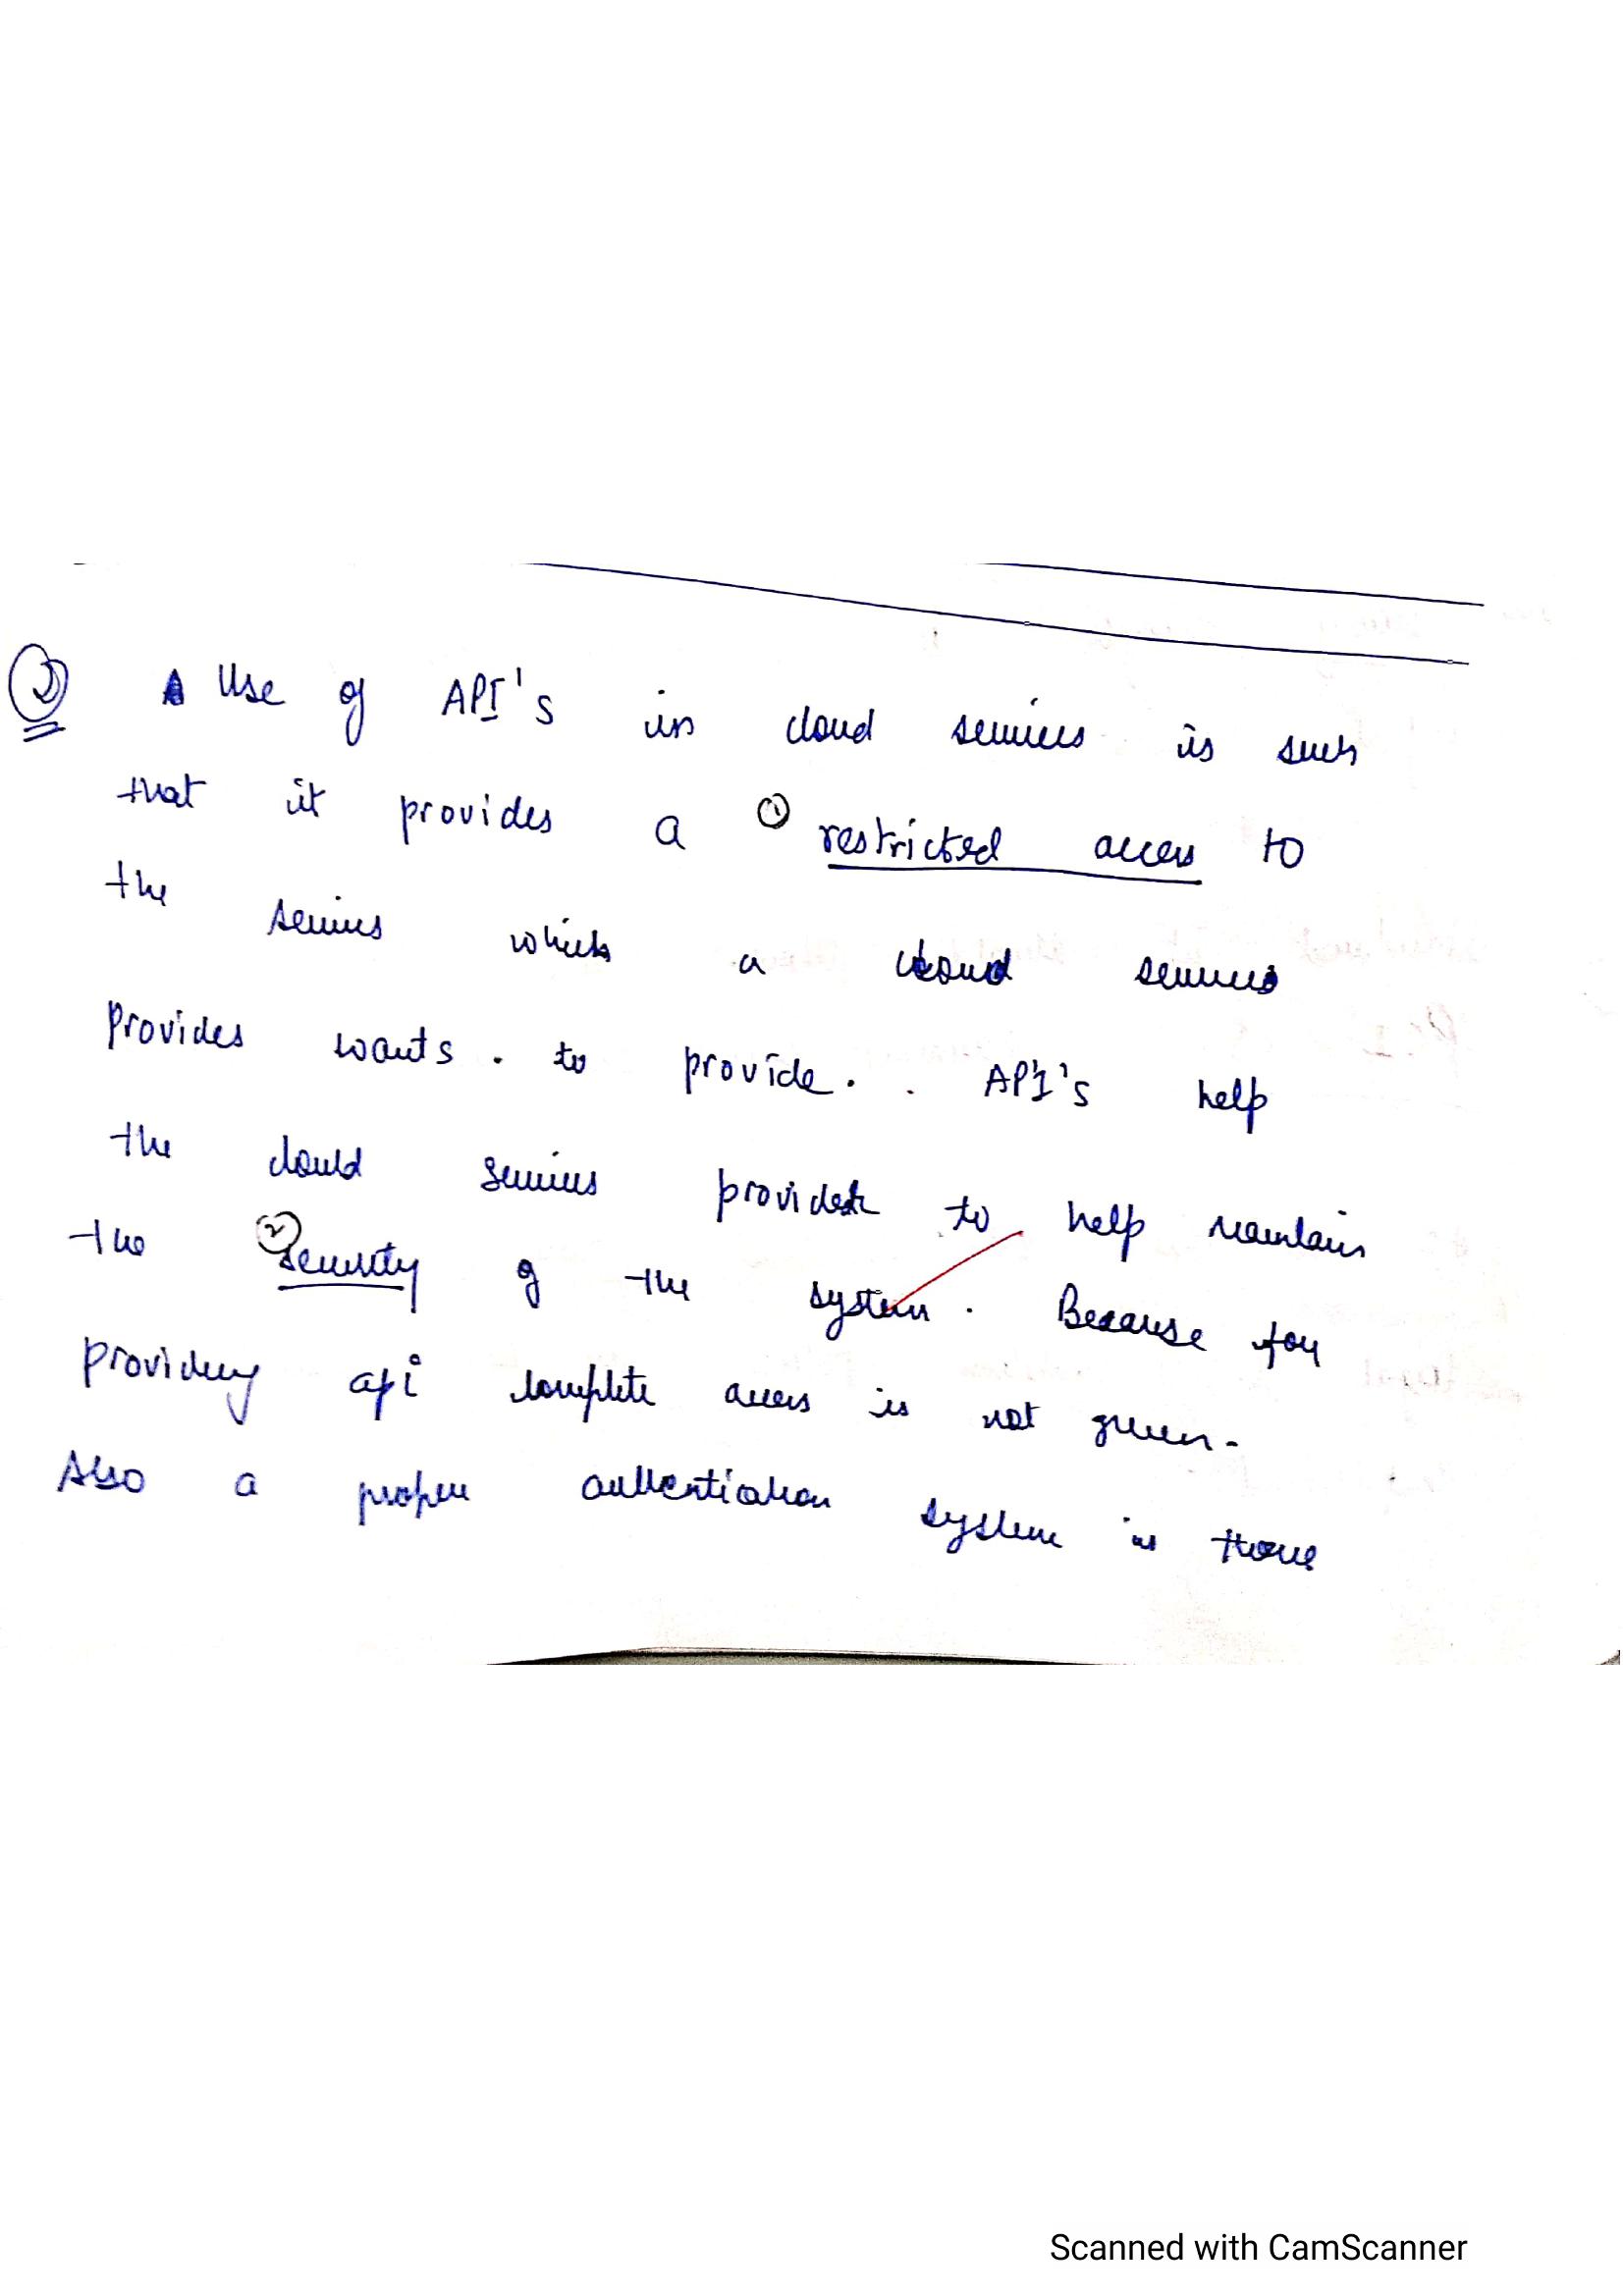 2 Use of API's in cloud services is such
that it provides a ① restricted access to
the services which a cloud services
provides wants. to provide. API's help
the clould services provider to help maintain
the ② security of the system. Because for
providing api complete access is not given.
Also a proper authentication system is there
Scanned with CamScanner